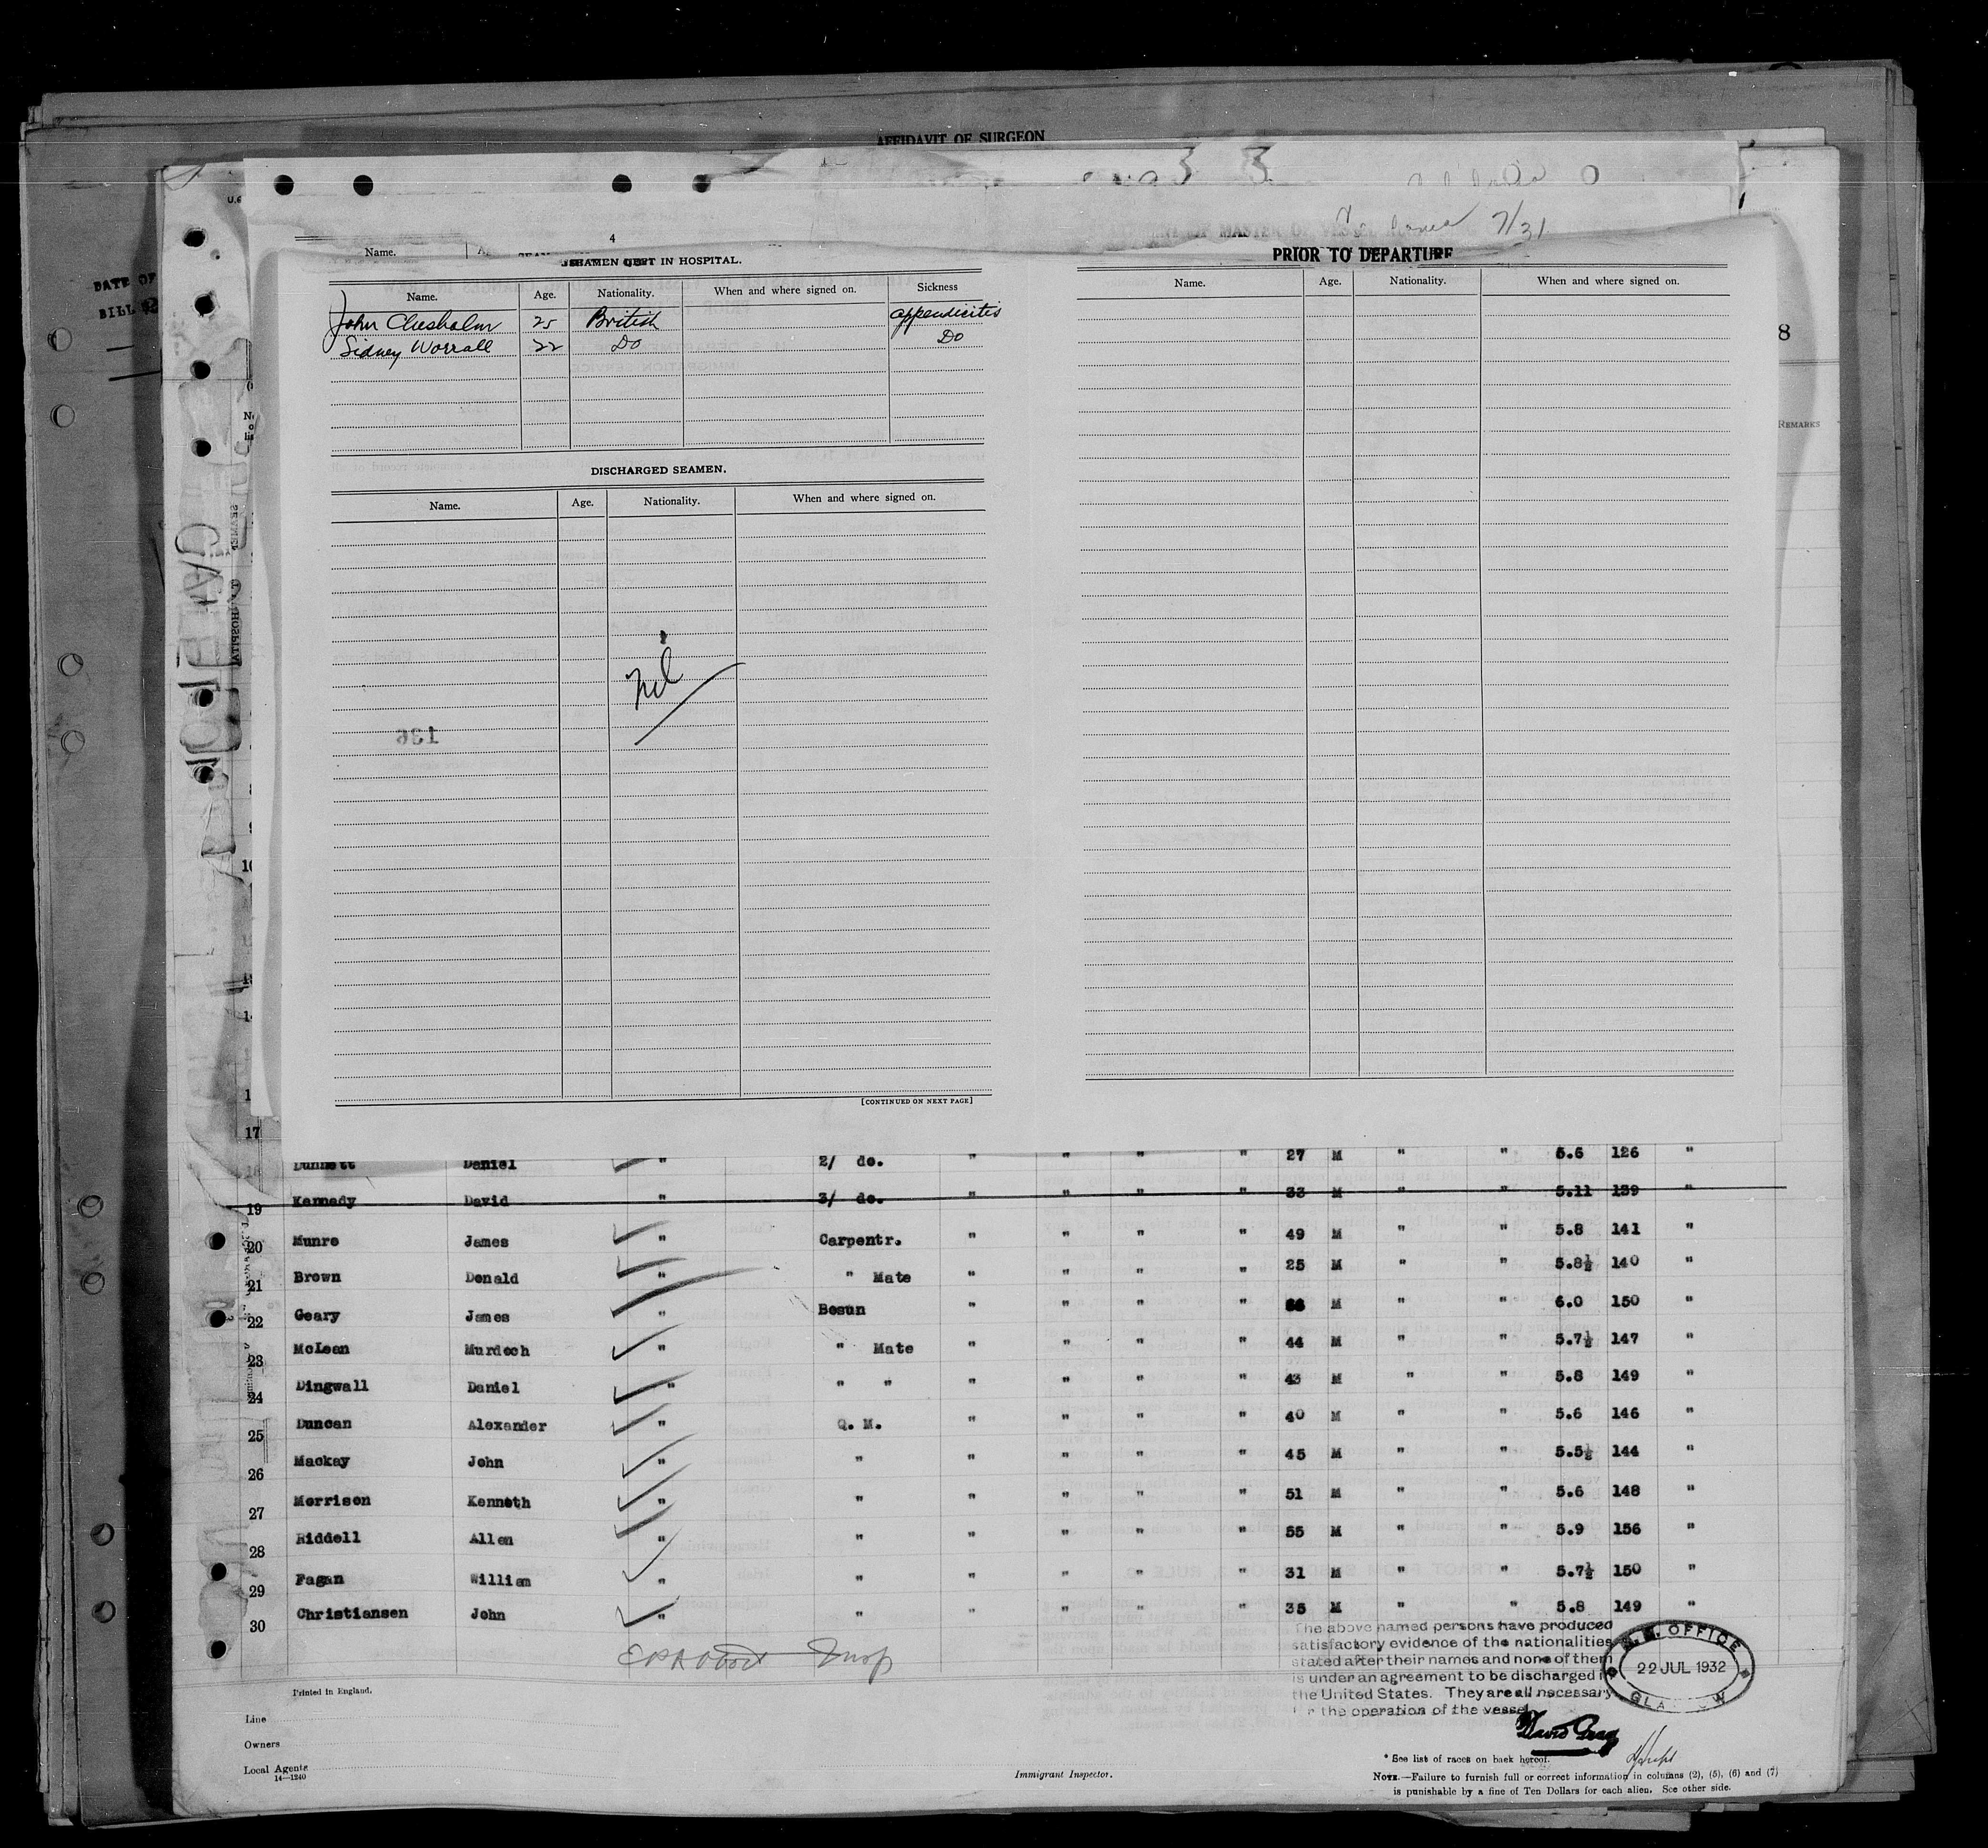 AFFIDAVIT OF SURGEON
7/31
DATE OF
BILL
Name.
4
SEAMEN LEFT IN HOSPITAL.
PRIOR TO DEPARTURE
Name. Age. Nationality. When and where signed on. Sickness
Name. Age. Nationality. When and where signed on.
John Chesholm 25 British appendicitis
Sidney Worrall 22 Do Do
8
REMARKS
DISCHARGED SEAMEN.
Name. Age. Nationality. When and where signed on.
Nil
136
[CONTINUED ON NEXT PAGE]
17
Dunnett Daniel " 2/ do. " " " " 27 M " " 5.6 126 "
19 Kennedy David " 3/ do. " " " " 33 M " " 5.11 139 "
20 Munro James " Carpentr. " " " " 49 M " " 5.8 141 "
21 Brown Donald " " Mate " " " " 25 M " " 5.8½ 140 "
22 Geary James " Bosun " " " " M " " 6.0 150 "
23 McLean Murdoch " " Mate " " " " 44 M " " 5.7½ 147 "
24 Dingwall Daniel " " " " " " " 43 M " " 5.8 149 "
25 Duncan Alexander " Q. M. " " " " 40 M " " 5.6 146 "
26 Mackay John " " " " " " 45 M " " 5.5½ 144 "
27 Morrison Kenneth " " " " " " 51 M " " 5.6 148 "
28 Riddell Allan " " " " " " 55 M " " 5.9 156 "
29 Fagan William " " " " " " 31 M " " 5.7½ 150 "
30 Christiansen John " " " " " " 35 M " " 5.8 149 "
The above named persons have produced
satisfactory evidence of the nationalities
stated after their names and none of them
is under an agreement to be discharged in
the United States. They are all necessary
for the operation of the vessel
OFFICE
22 JUL 1932
GLASGOW
David Gray
Printed in England.
Line
Owners
Local Agents
14—1240
Immigrant Inspector.
* See list of races on back hereof.
NOTE.—Failure to furnish full or correct information in columns (2), (5), (6) and (7)
is punishable by a fine of Ten Dollars for each alien. See other side.